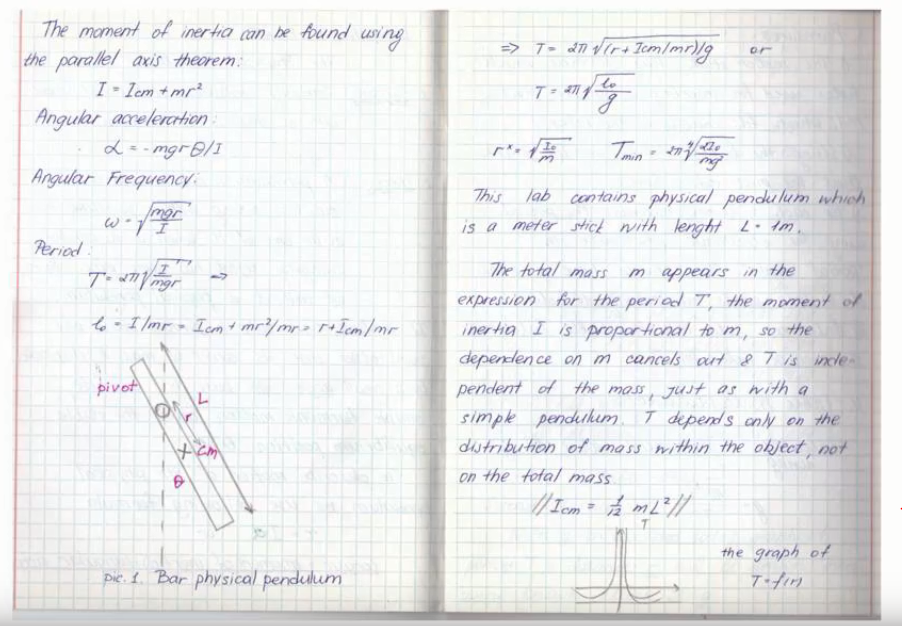 The moment of inertia can be found using
the parallel axis theorem:
I = Icm + mr²
Angular acceleration:
α = - mgrθ/I
Angular Frequency:
ω = √(mgr/I)
Period:
T = 2π√(I/mgr) ⇒
l₀ = I/mr = Icm + mr²/mr = r + Icm/mr
pivot
L
r
cm
θ
pic. 1. Bar physical pendulum
⇒ T = 2π√(r + Icm/mr)/g or
T = 2π√(l₀/g)
r* = √(I₀/m) Tmin = 2π⁴√(2I₀/mg²)
This lab contains physical pendulum which
is a meter stick with lenght L = 1m.
The total mass m appears in the
expression for the period T, the moment of
inertia I is proportional to m, so the
dependence on m cancels out & T is inde-
pendent of the mass, just as with a
simple pendulum. T depends only on the
distribution of mass within the object, not
on the total mass
//Icm = 1/12 mL²//
T
the graph of
T = f(r)